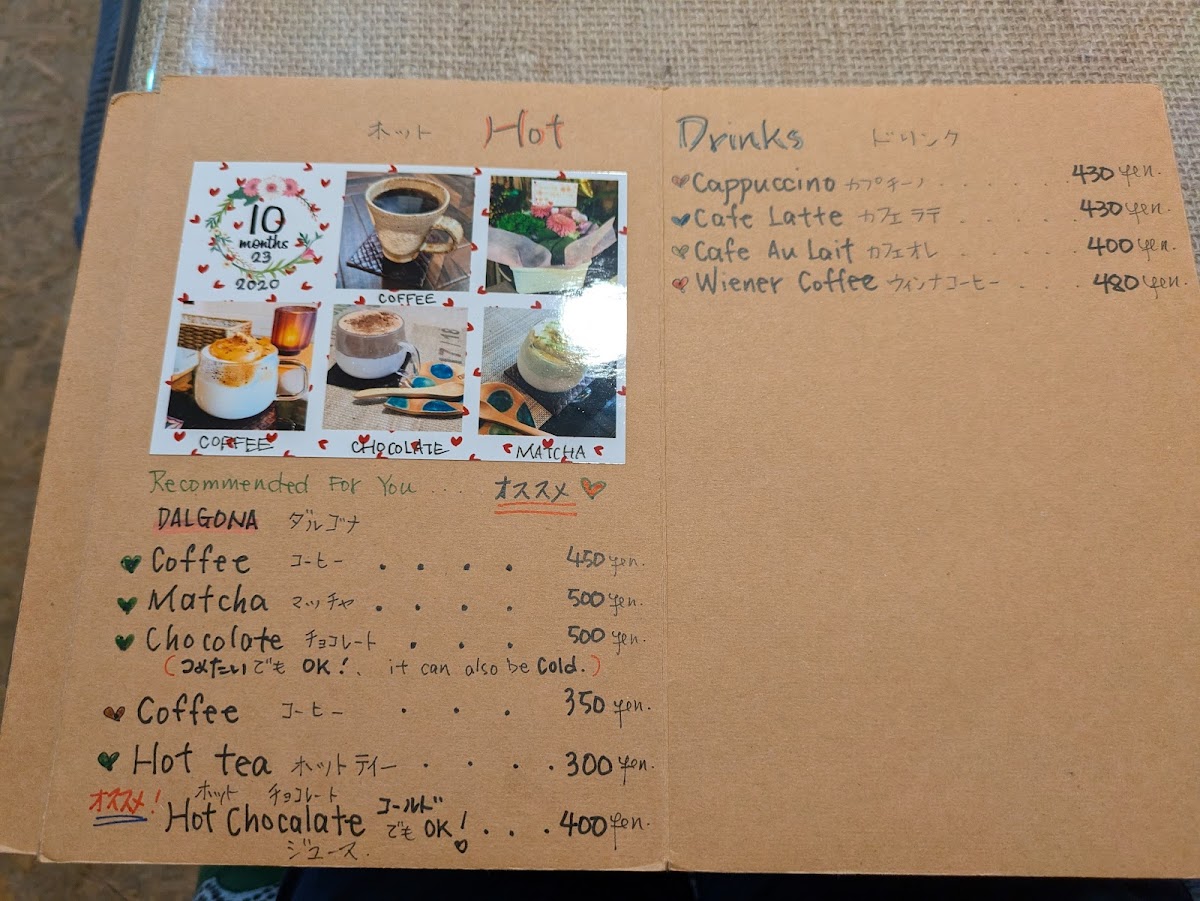 ホット Hot
Drinks ドリンク
10
months
23
2020
COFFEE
17/18
COFFEE
CHOCOLATE
MATCHA
Recommended For You ... オススメ
DALGONA ダルゴナ
Coffee コーヒー . . . . 450 yen.
Matcha マッチャ . . . . 500 yen.
Chocolate チョコレート . . . 500 yen.
(つめたいでも OK!. it can also be Cold.)
Coffee コーヒー . . . 350 yen.
Hot tea ホットティー . . . . 300 yen.
ホット チョコレート
オススメ! Hot Chocalate コールドでも OK! . . . 400 yen.
ジュース.
Cappuccino カプチーノ . . . . . . 430 yen.
Cafe Latte カフェラテ . . . . . 430 yen.
Cafe Au Lait カフェオレ . . . . . 400 yen.
Wiener Coffee ウィンナコーヒー . . . . 480 yen.